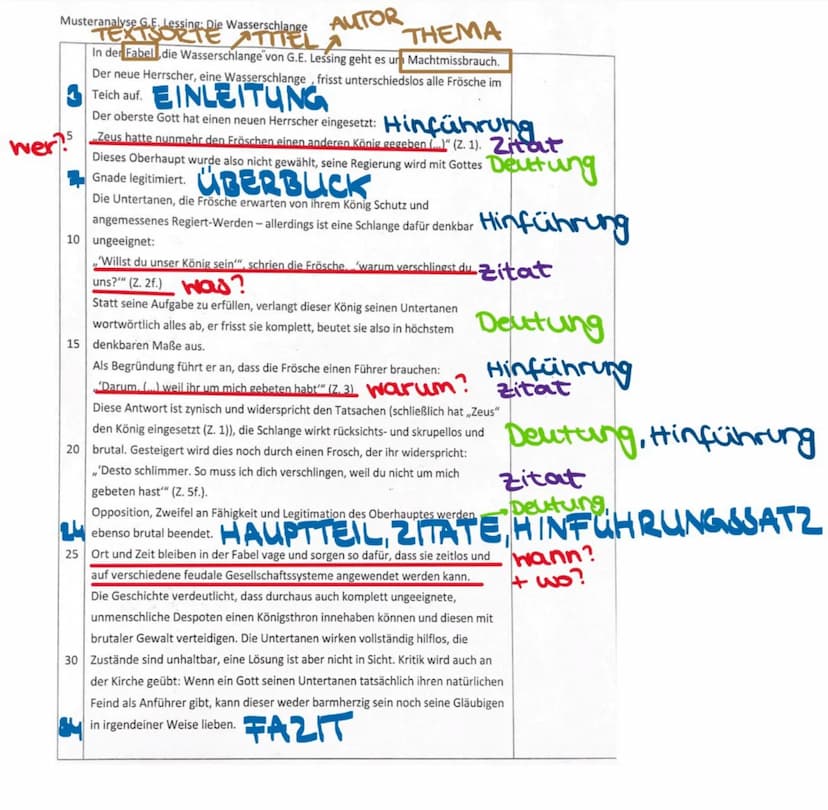 Musteranalyse G.E. Lessing: Die Wasserschlange
TEXTSORTE TITEL AUTOR THEMA
In der Fabel „die Wasserschlange“ von G.E. Lessing geht es um Machtmissbrauch.
Der neue Herrscher, eine Wasserschlange , frisst unterschiedslos alle Frösche im
3 Teich auf. EINLEITUNG
Der oberste Gott hat einen neuen Herrscher eingesetzt: Hinführung
wer? 5 „Zeus hatte nunmehr den Fröschen einen anderen König gegeben (...)“ (Z. 1). Zitat
Dieses Oberhaupt wurde also nicht gewählt, seine Regierung wird mit Gottes Deutung
7 Gnade legitimiert. ÜBERBLICK
Die Untertanen, die Frösche erwarten von ihrem König Schutz und
angemessenes Regiert-Werden – allerdings ist eine Schlange dafür denkbar Hinführung
10 ungeeignet:
„‘Willst du unser König sein‘“, schrien die Frösche, „‘warum verschlingst du Zitat
uns?‘“ (Z. 2f.) was?
Statt seine Aufgabe zu erfüllen, verlangt dieser König seinen Untertanen
wortwörtlich alles ab, er frisst sie komplett, beutet sie also in höchstem Deutung
15 denkbaren Maße aus.
Als Begründung führt er an, dass die Frösche einen Führer brauchen: Hinführung
„‘Darum, (...) weil ihr um mich gebeten habt‘“ (Z. 3) warum? Zitat
Diese Antwort ist zynisch und widerspricht den Tatsachen (schließlich hat „Zeus“
den König eingesetzt (Z. 1)), die Schlange wirkt rücksichts- und skrupellos und Deutung, Hinführung
20 brutal. Gesteigert wird dies noch durch einen Frosch, der ihr widerspricht:
„‘Desto schlimmer. So muss ich dich verschlingen, weil du nicht um mich Zitat
gebeten hast‘“ (Z. 5f.).
Opposition, Zweifel an Fähigkeit und Legitimation des Oberhauptes werden Deutung
24 ebenso brutal beendet. HAUPTTEIL, ZITATE, HINFÜHRUNGSSATZ
25 Ort und Zeit bleiben in der Fabel vage und sorgen so dafür, dass sie zeitlos und wann?
auf verschiedene feudale Gesellschaftssysteme angewendet werden kann. + wo?
Die Geschichte verdeutlicht, dass durchaus auch komplett ungeeignete,
unmenschliche Despoten einen Königsthron innehaben können und diesen mit
brutaler Gewalt verteidigen. Die Untertanen wirken vollständig hilflos, die
30 Zustände sind unhaltbar, eine Lösung ist aber nicht in Sicht. Kritik wird auch an
der Kirche geübt: Wenn ein Gott seinen Untertanen tatsächlich ihren natürlichen
Feind als Anführer gibt, kann dieser weder barmherzig sein noch seine Gläubigen
34 in irgendeiner Weise lieben. FAZIT